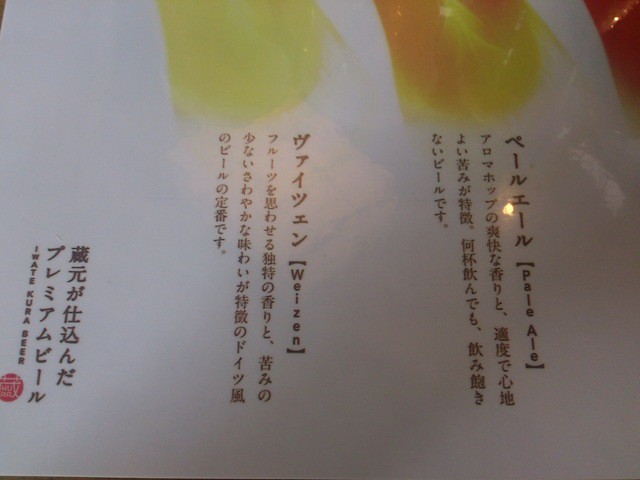 ペールエール【Pale Ale】
アロマホップの爽快な香りと、適度で心地
よい苦みが特徴。何杯飲んでも、飲み飽き
ないビールです。
ヴァイツェン【Weizen】
フルーツを思わせる独特の香りと、苦みの
少ないさわやかな味わいが特徴のドイツ風
のビールの定番です。
蔵元が仕込んだ
プレミアムビール
IWATE KURA BEER
蔵